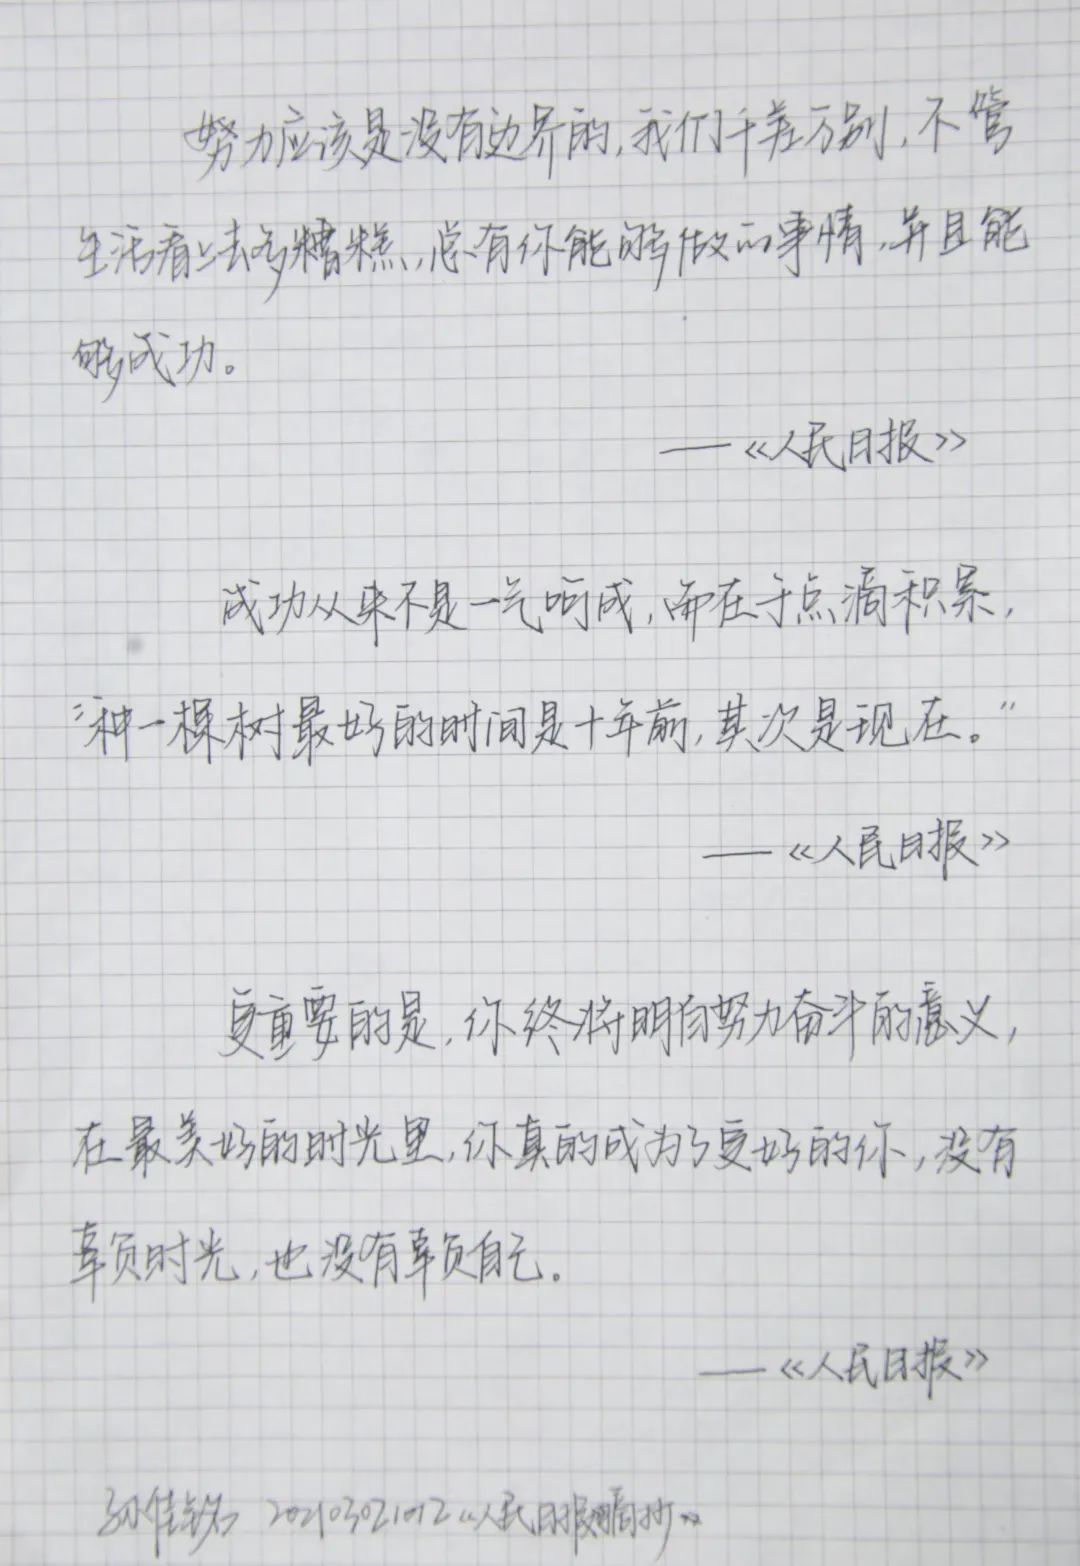 努力应该是没有边界的,我们千差万别,不管
生活看上去多糟糕,总有你能够做的事情,并且能
够成功。
——《人民日报》
成功从来不是一气呵成,而在于点滴积累,
“种一棵树最好的时间是十年前,其次是现在。”
——《人民日报》
更重要的是,你终将明白努力奋斗的意义,
在最美好的时光里,你真的成为了更好的你,没有
辜负时光,也没有辜负自己。
——《人民日报》
孙佳 《人民日报摘抄》